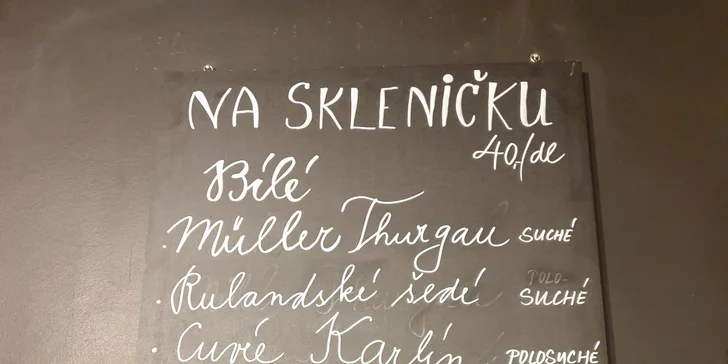 NA SKLENIČKU
40,-/dl
Bílé
. Müller Thurgau SUCHÉ
. Rulandské šedé POLO-SUCHÉ
. Cuvée Karlín POLOSUCHÉ